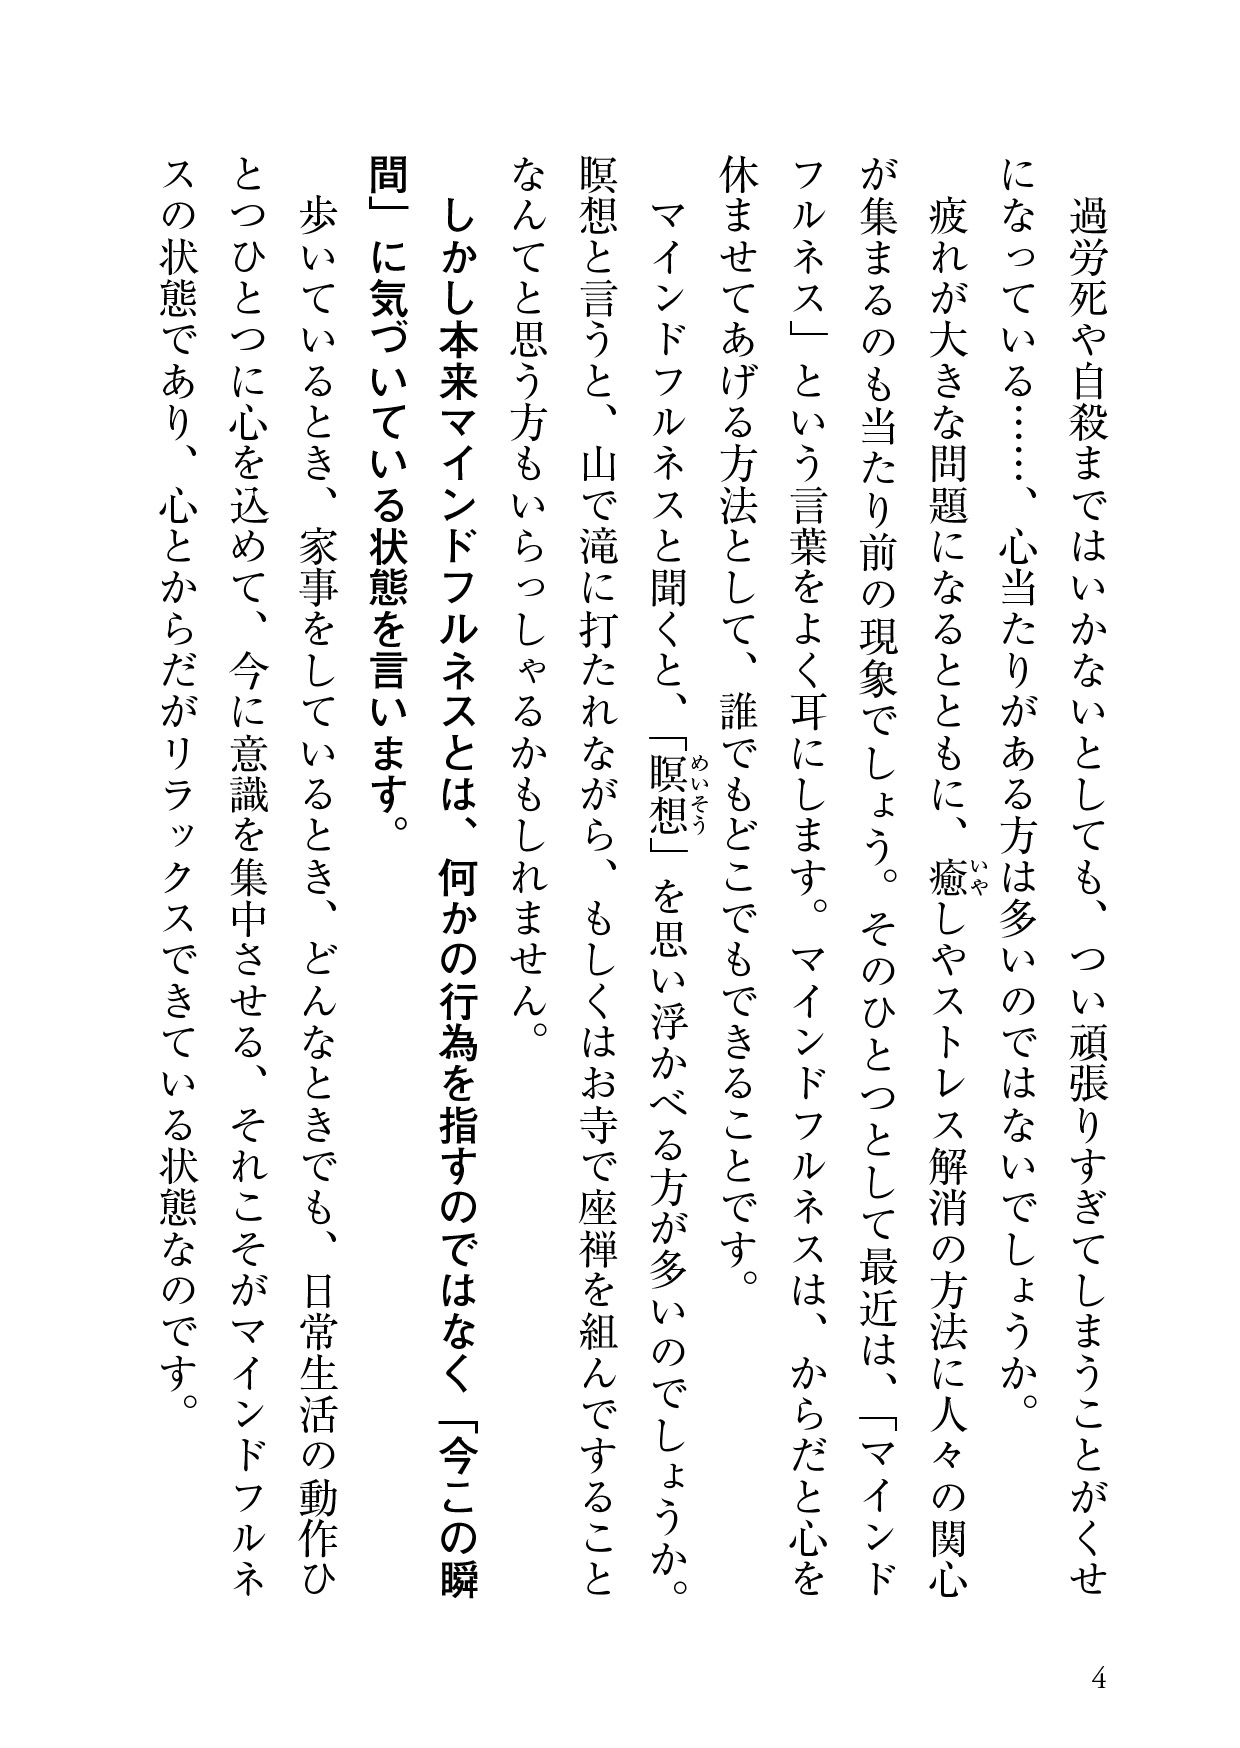 過労死や自殺まではいかないとしても、つい頑張りすぎてしまうことがくせ
になっている……、心当たりがある方は多いのではないでしょうか。
疲れが大きな問題になるとともに、癒しやストレス解消の方法に人々の関心
いや
が集まるのも当たり前の現象でしょう。そのひとつとして最近は、「マインド
フルネス」という言葉をよく耳にします。マインドフルネスは、からだと心を
休ませてあげる方法として、誰でもどこでもできることです。
マインドフルネスと聞くと、「瞑想」を思い浮かべる方が多いのでしょうか。
めいそう
瞑想と言うと、山で滝に打たれながら、もしくはお寺で座禅を組んですること
なんてと思う方もいらっしゃるかもしれません。
しかし本来マインドフルネスとは、何かの行為を指すのではなく「今この瞬
間」に気づいている状態を言います。
歩いているとき、家事をしているとき、どんなときでも、日常生活の動作ひ
とつひとつに心を込めて、今に意識を集中させる、それこそがマインドフルネ
スの状態であり、心とからだがリラックスできている状態なのです。
4